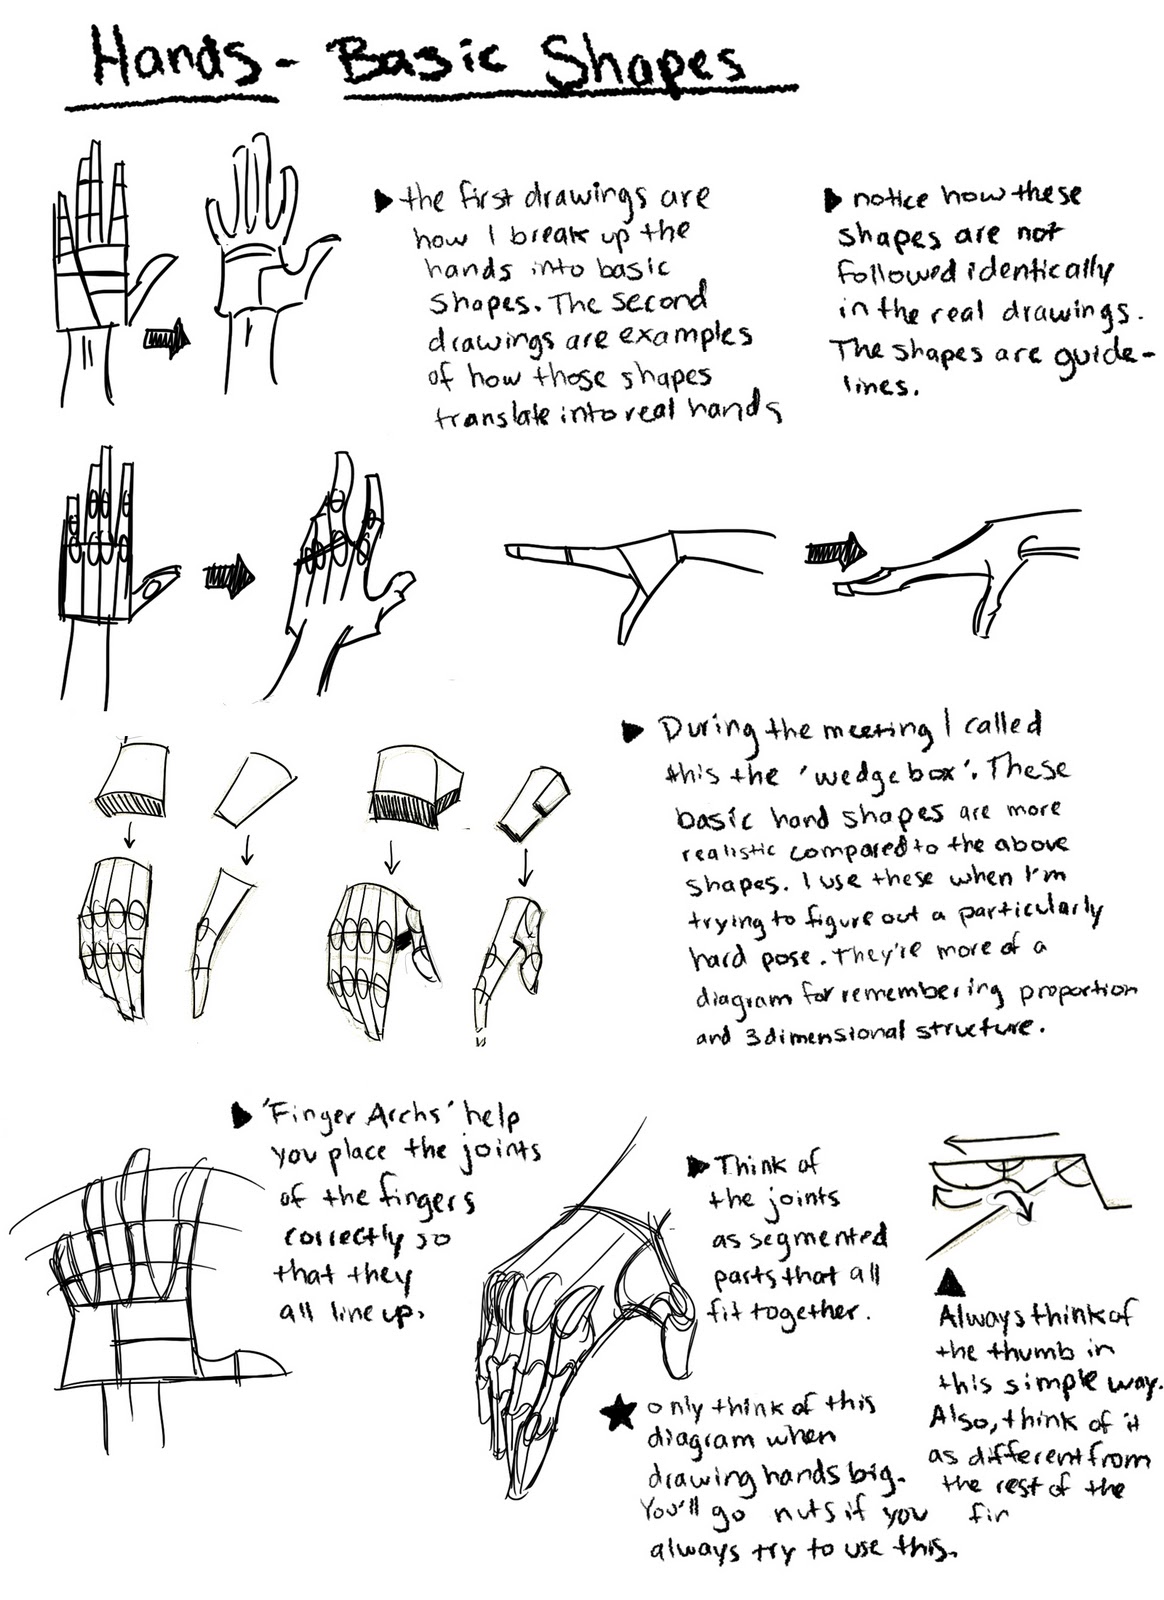 Hands - Basic Shapes
the first drawings are
how I break up the
hands into basic
shapes. The second
drawings are examples
of how those shapes
translate into real hands
notice how these
shapes are not
followed identically
in the real drawings.
The shapes are guide-
lines.
During the meeting I called
this the 'wedge box'. These
basic hand shapes are more
realistic compared to the above
shapes. I use these when I'm
trying to figure out a particularly
hard pose. They're more of a
diagram for remembering proportion
and 3 dimensional structure.
'Finger Archs' help
you place the joints
of the fingers
correctly so
that they
all line up.
Think of
the joints
as segmented
parts that all
fit together.
only think of this
diagram when
drawing hands big.
You'll go nuts if you
always try to use this.
Always think of
the thumb in
this simple way.
Also, think of it
as different from
the rest of the
fin